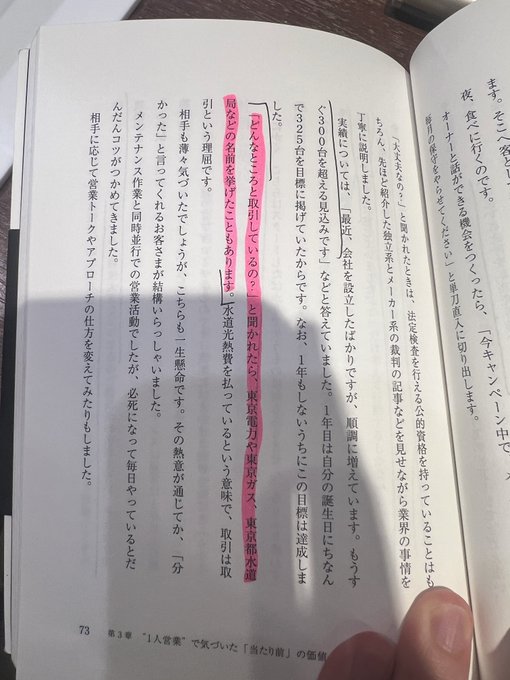 ます。そこへ客とし
夜、食べに行くのです。
オーナーと話ができる機会をつくったら、「今キャンペーン中で、
毎月の保守をやらせてください」と単刀直入に切り出します。
「大丈夫なの？」と聞かれたときは、法定検査を行える公的資格を持っていることはも
ちろん、先ほど紹介した独立系とメーカー系の裁判の記事などを見せながら業界の事情を
丁寧に説明しました。
実績については、「最近、会社を設立したばかりですが、順調に増えています。もうす
ぐ300台を超える見込みです」などと答えていました。1年目は自分の誕生日にちなん
で325台を目標に掲げていたからです。なお、1年もしないうちにこの目標は達成しま
した。
「どんなところと取引しているの？」と聞かれたら、東京電力や東京ガス、東京都水道
局などの名前を挙げたこともあります。水道光熱費を払っているという意味で、取引は取
引という理屈です。
相手も薄々気づいたでしょうが、こちらも一生懸命です。その熱意が通じてか、「分
かった」と言ってくれるお客さまが結構いらっしゃいました。
メンテナンス作業と同時並行での営業活動でしたが、必死になって毎日やっているとだ
んだんコツがつかめてきました。
相手に応じて営業トークやアプローチの仕方を変えてみたりもしました。
73 第3章 “1人営業”で気づいた「当たり前」の価値